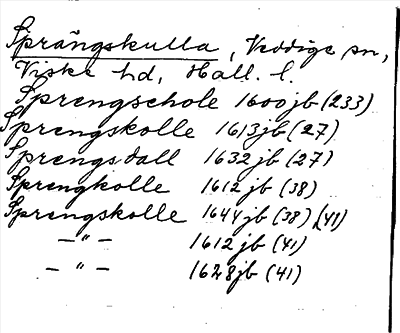 Sprängskulla, Veddige sn,
Viske hd, Hall. l.
Sprengschole 1600 jb (233)
Sprengskolle 1613 jb (27)
Sprengsdall 1632 jb (27)
Sprengkolle 1612 jb (38)
Sprengskolle 1644 jb (38) (41)
—"— 1612 jb (41)
—"— 1628 jb (41)